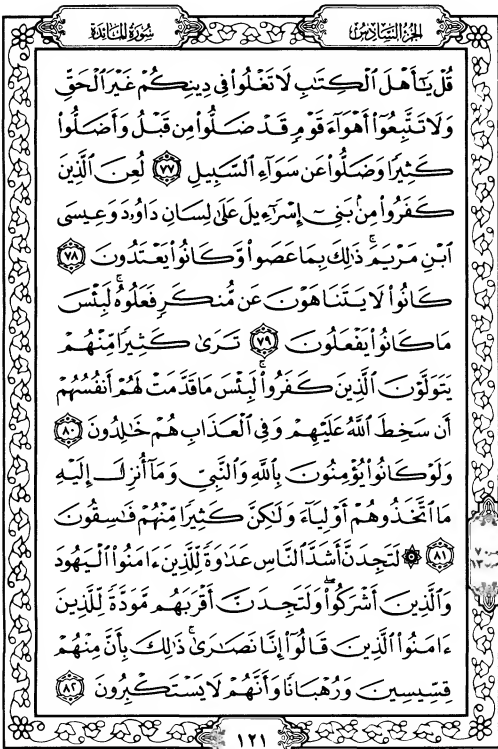 سُورَةُ المَائِدَة
الجُزءُ السَّادِسُ
قُلْ يَٰٓأَهْلَ ٱلْكِتَٰبِ لَا تَغْلُوا۟ فِى دِينِكُمْ غَيْرَ ٱلْحَقِّ
وَلَا تَتَّبِعُوٓا۟ أَهْوَآءَ قَوْمٍ قَدْ ضَلُّوا۟ مِن قَبْلُ وَأَضَلُّوا۟
كَثِيرًا وَضَلُّوا۟ عَن سَوَآءِ ٱلسَّبِيلِ ٧٧ لُعِنَ ٱلَّذِينَ
كَفَرُوا۟ مِنۢ بَنِىٓ إِسْرَٰٓءِيلَ عَلَىٰ لِسَانِ دَاوُۥدَ وَعِيسَى
ٱبْنِ مَرْيَمَ ۚ ذَٰلِكَ بِمَا عَصَوا۟ وَّكَانُوا۟ يَعْتَدُونَ ٧٨
كَانُوا۟ لَا يَتَنَاهَوْنَ عَن مُّنكَرٍ فَعَلُوهُ ۚ لَبِئْسَ
مَا كَانُوا۟ يَفْعَلُونَ ٧٩ تَرَىٰ كَثِيرًا مِّنْهُمْ
يَتَوَلَّوْنَ ٱلَّذِينَ كَفَرُوا۟ ۚ لَبِئْسَ مَا قَدَّمَتْ لَهُمْ أَنفُسُهُمْ
أَن سَخِطَ ٱللَّهُ عَلَيْهِمْ وَفِى ٱلْعَذَابِ هُمْ خَٰلِدُونَ ٨٠
وَلَوْ كَانُوا۟ يُؤْمِنُونَ بِٱللَّهِ وَٱلنَّبِىِّ وَمَآ أُنزِلَ إِلَيْهِ
مَا ٱتَّخَذُوهُمْ أَوْلِيَآءَ وَلَٰكِنَّ كَثِيرًا مِّنْهُمْ فَٰسِقُونَ
٨١ ۞ لَتَجِدَنَّ أَشَدَّ ٱلنَّاسِ عَدَٰوَةً لِّلَّذِينَ ءَامَنُوا۟ ٱلْيَهُودَ
وَٱلَّذِينَ أَشْرَكُوا۟ ۖ وَلَتَجِدَنَّ أَقْرَبَهُم مَّوَدَّةً لِّلَّذِينَ
ءَامَنُوا۟ ٱلَّذِينَ قَالُوٓا۟ إِنَّا نَصَٰرَىٰ ۚ ذَٰلِكَ بِأَنَّ مِنْهُمْ
قِسِّيسِينَ وَرُهْبَانًا وَأَنَّهُمْ لَا يَسْتَكْبِرُونَ ٨٢
١٢١